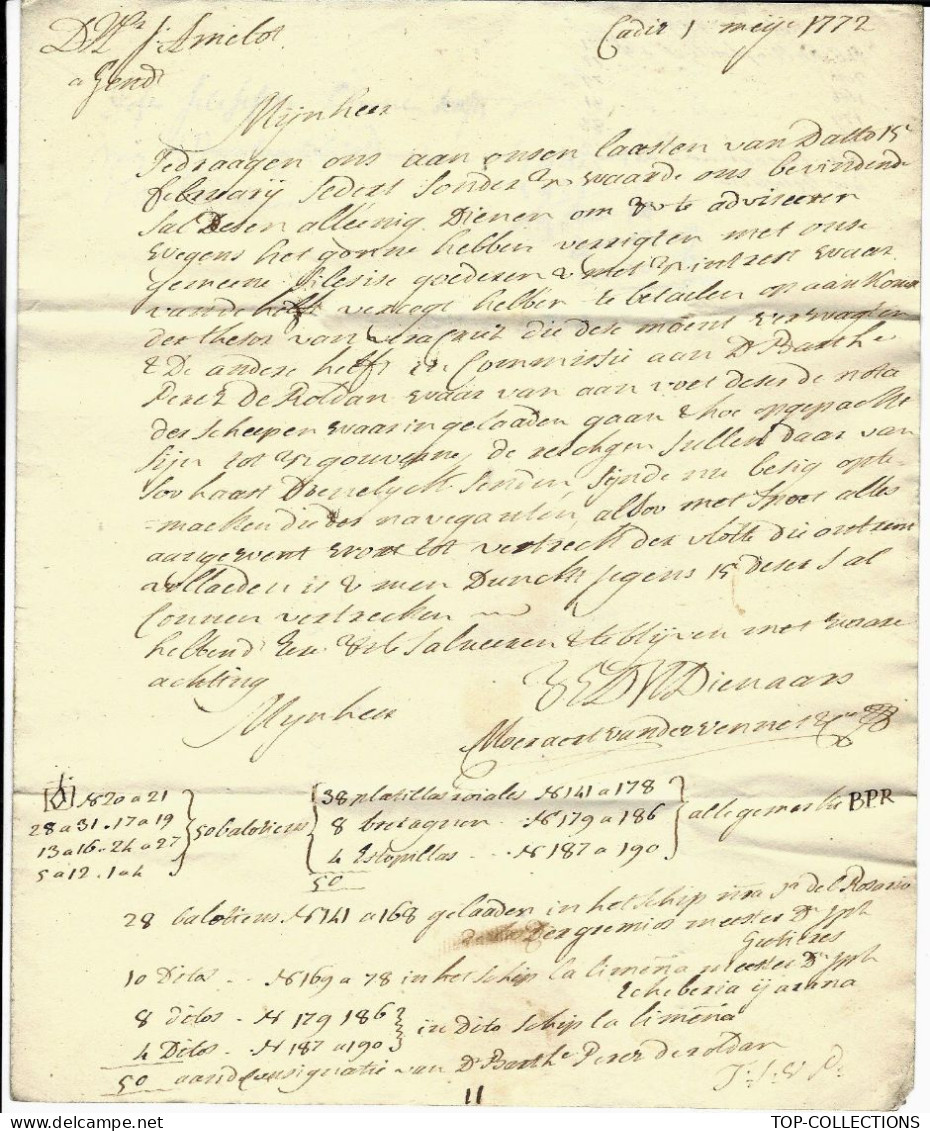 Cadix 1 meije 1772
J: Amelot
a Gend
Mijnheer
Gedraagen ons aan onsen laasten van Datto 15
february sedert sonder waarde ons bevindende
sal Desen alleenig Dienen om te adviseeren
wegens het gonne hebben verrigten met onse
gemeene silesise goederen & met intrest waar
van de helft verkogt hebben te betaelen op aankomst
der thesor van vera Cruz die dese maent verwagten
& De andere helft in Commissie aan Dn Barthe
Perez De Roldan waar van aan voet deser de nota
der scheepen waarin gelaaden gaan & hoe opgepackt
sijn tot gouverne, de reickgen sullen daar van
soo haast Doenelyck senden sijnde nu besig opte-
=maeken die der naveganten, alsoo met spoet alles
aangewent wort tot vertreck der vlotte die ontrent
vollaeden is & men Dunckt jegens 15 deser sal
connen vertrecken
hebbend Eer te salueeren & te blijven met waare
achting
Mijnheer
Dienaars
Moeraert vander vennet & Co
N 20 a 21
28 a 31 - 17 a 19
13 a 16 - 24 a 27
5 a 12 . 1 a 4
50 balotiens
38 platillas roiales N 141 a 178
8 bretagnen .. N 179 a 186
4 Estopillas ... N 187 a 190
50
alle gemerkt BPR
28 balotiens N 141 a 168 gelaaden in het schip nra sa del Rosario
Der gremios meester Dn Jph
Gutieres
10 Ditos .. N 169 a 78 in het schip la limeña meester Dn Jph
Echeberia ij arana
8 ditos - N 179 186
4 Ditos - N 187 a 190
in dito schip la limeña
50 aan de Consignatie van Dn Barthe Perez de roldan
11
TOP-COLLECTIONS